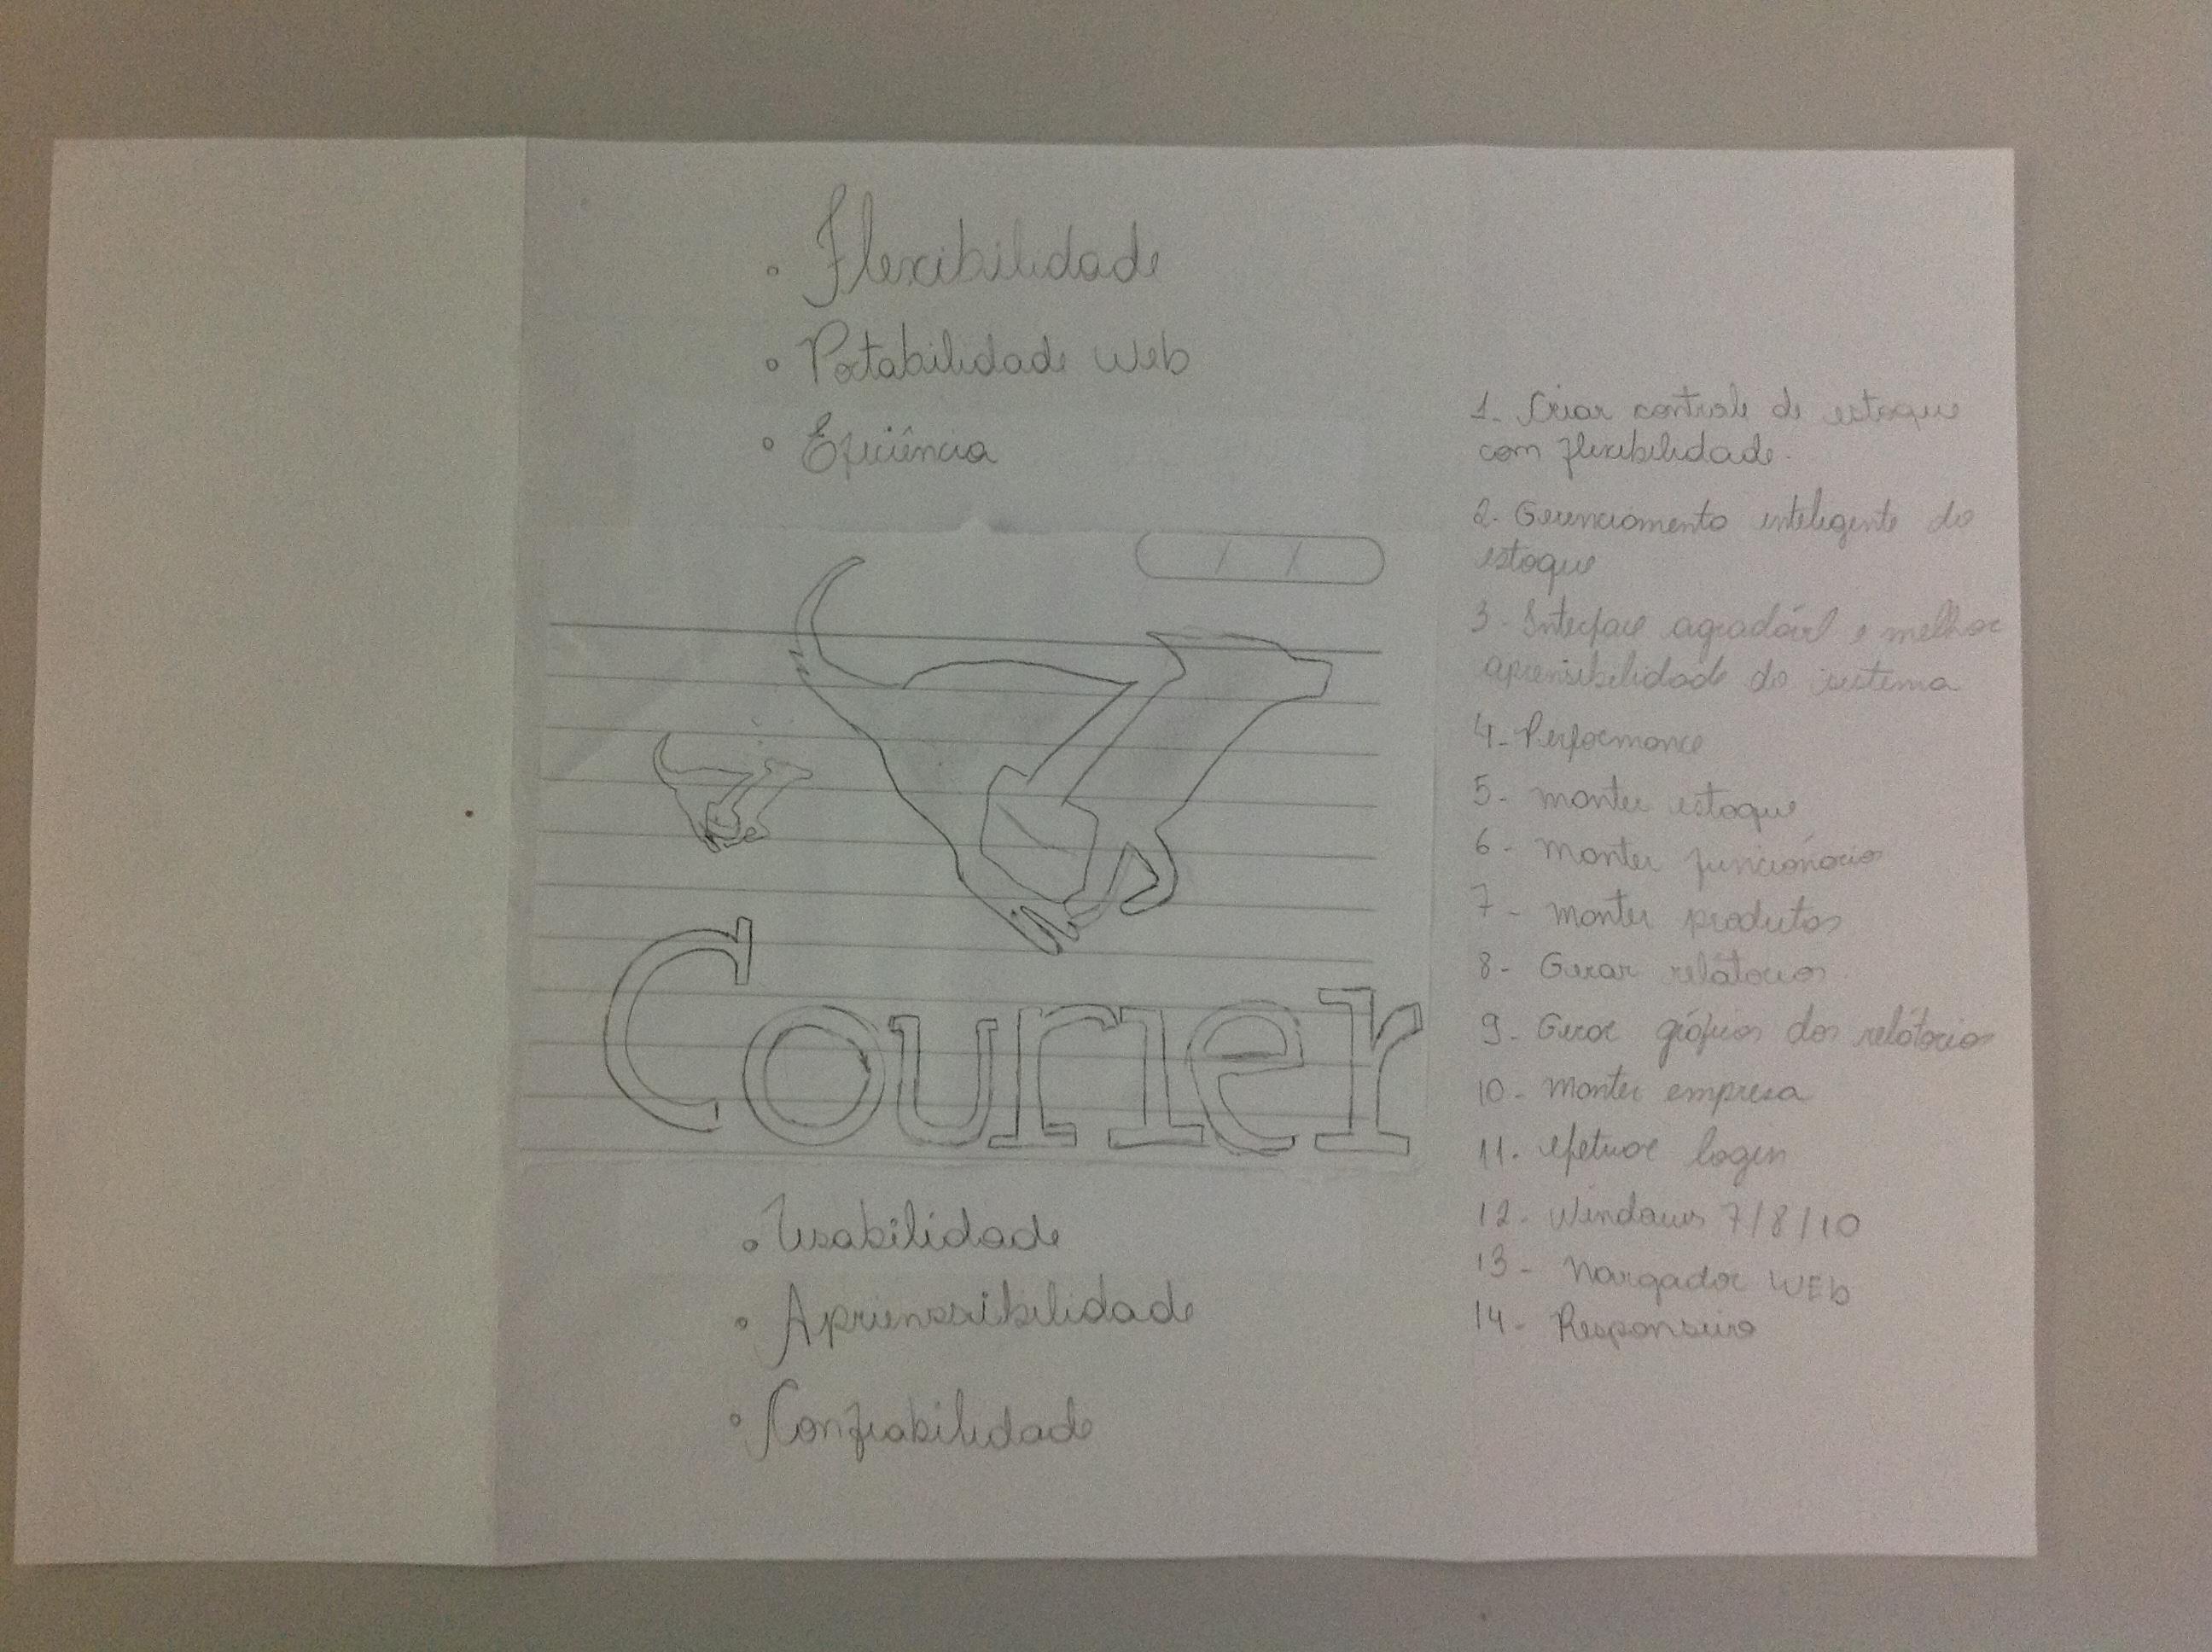 • Flexibilidade
• Portabilidade Web
• Eficiência
Courier
• Usabilidade
• Aprienssibilidade
• Confiabilidade
1- Criar controle de estoque
com flexibilidade.
2- Gerenciamento inteligente do
estoque
3- Interface agradável e melhor
aprensibilidade do sistema
4- Performance
5- Manter estoque
6- Manter funcionários
7- Manter produtos
8- Gerar relátorios.
9- Gerar gráficos dos relátorios
10- Manter empresa
11. efetuar login
12- Windows 7/8/10
13- Navegador WEb
14- Responsivo